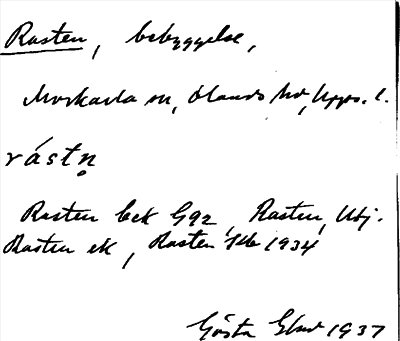 Rasten, bebyggelse,
Morkarla sn, Olands hd, Upps. l.
rástn̥
Rasten bek G92, Rasten, Utj.
Rasten ek, Rasten 1934
Gösta 1937